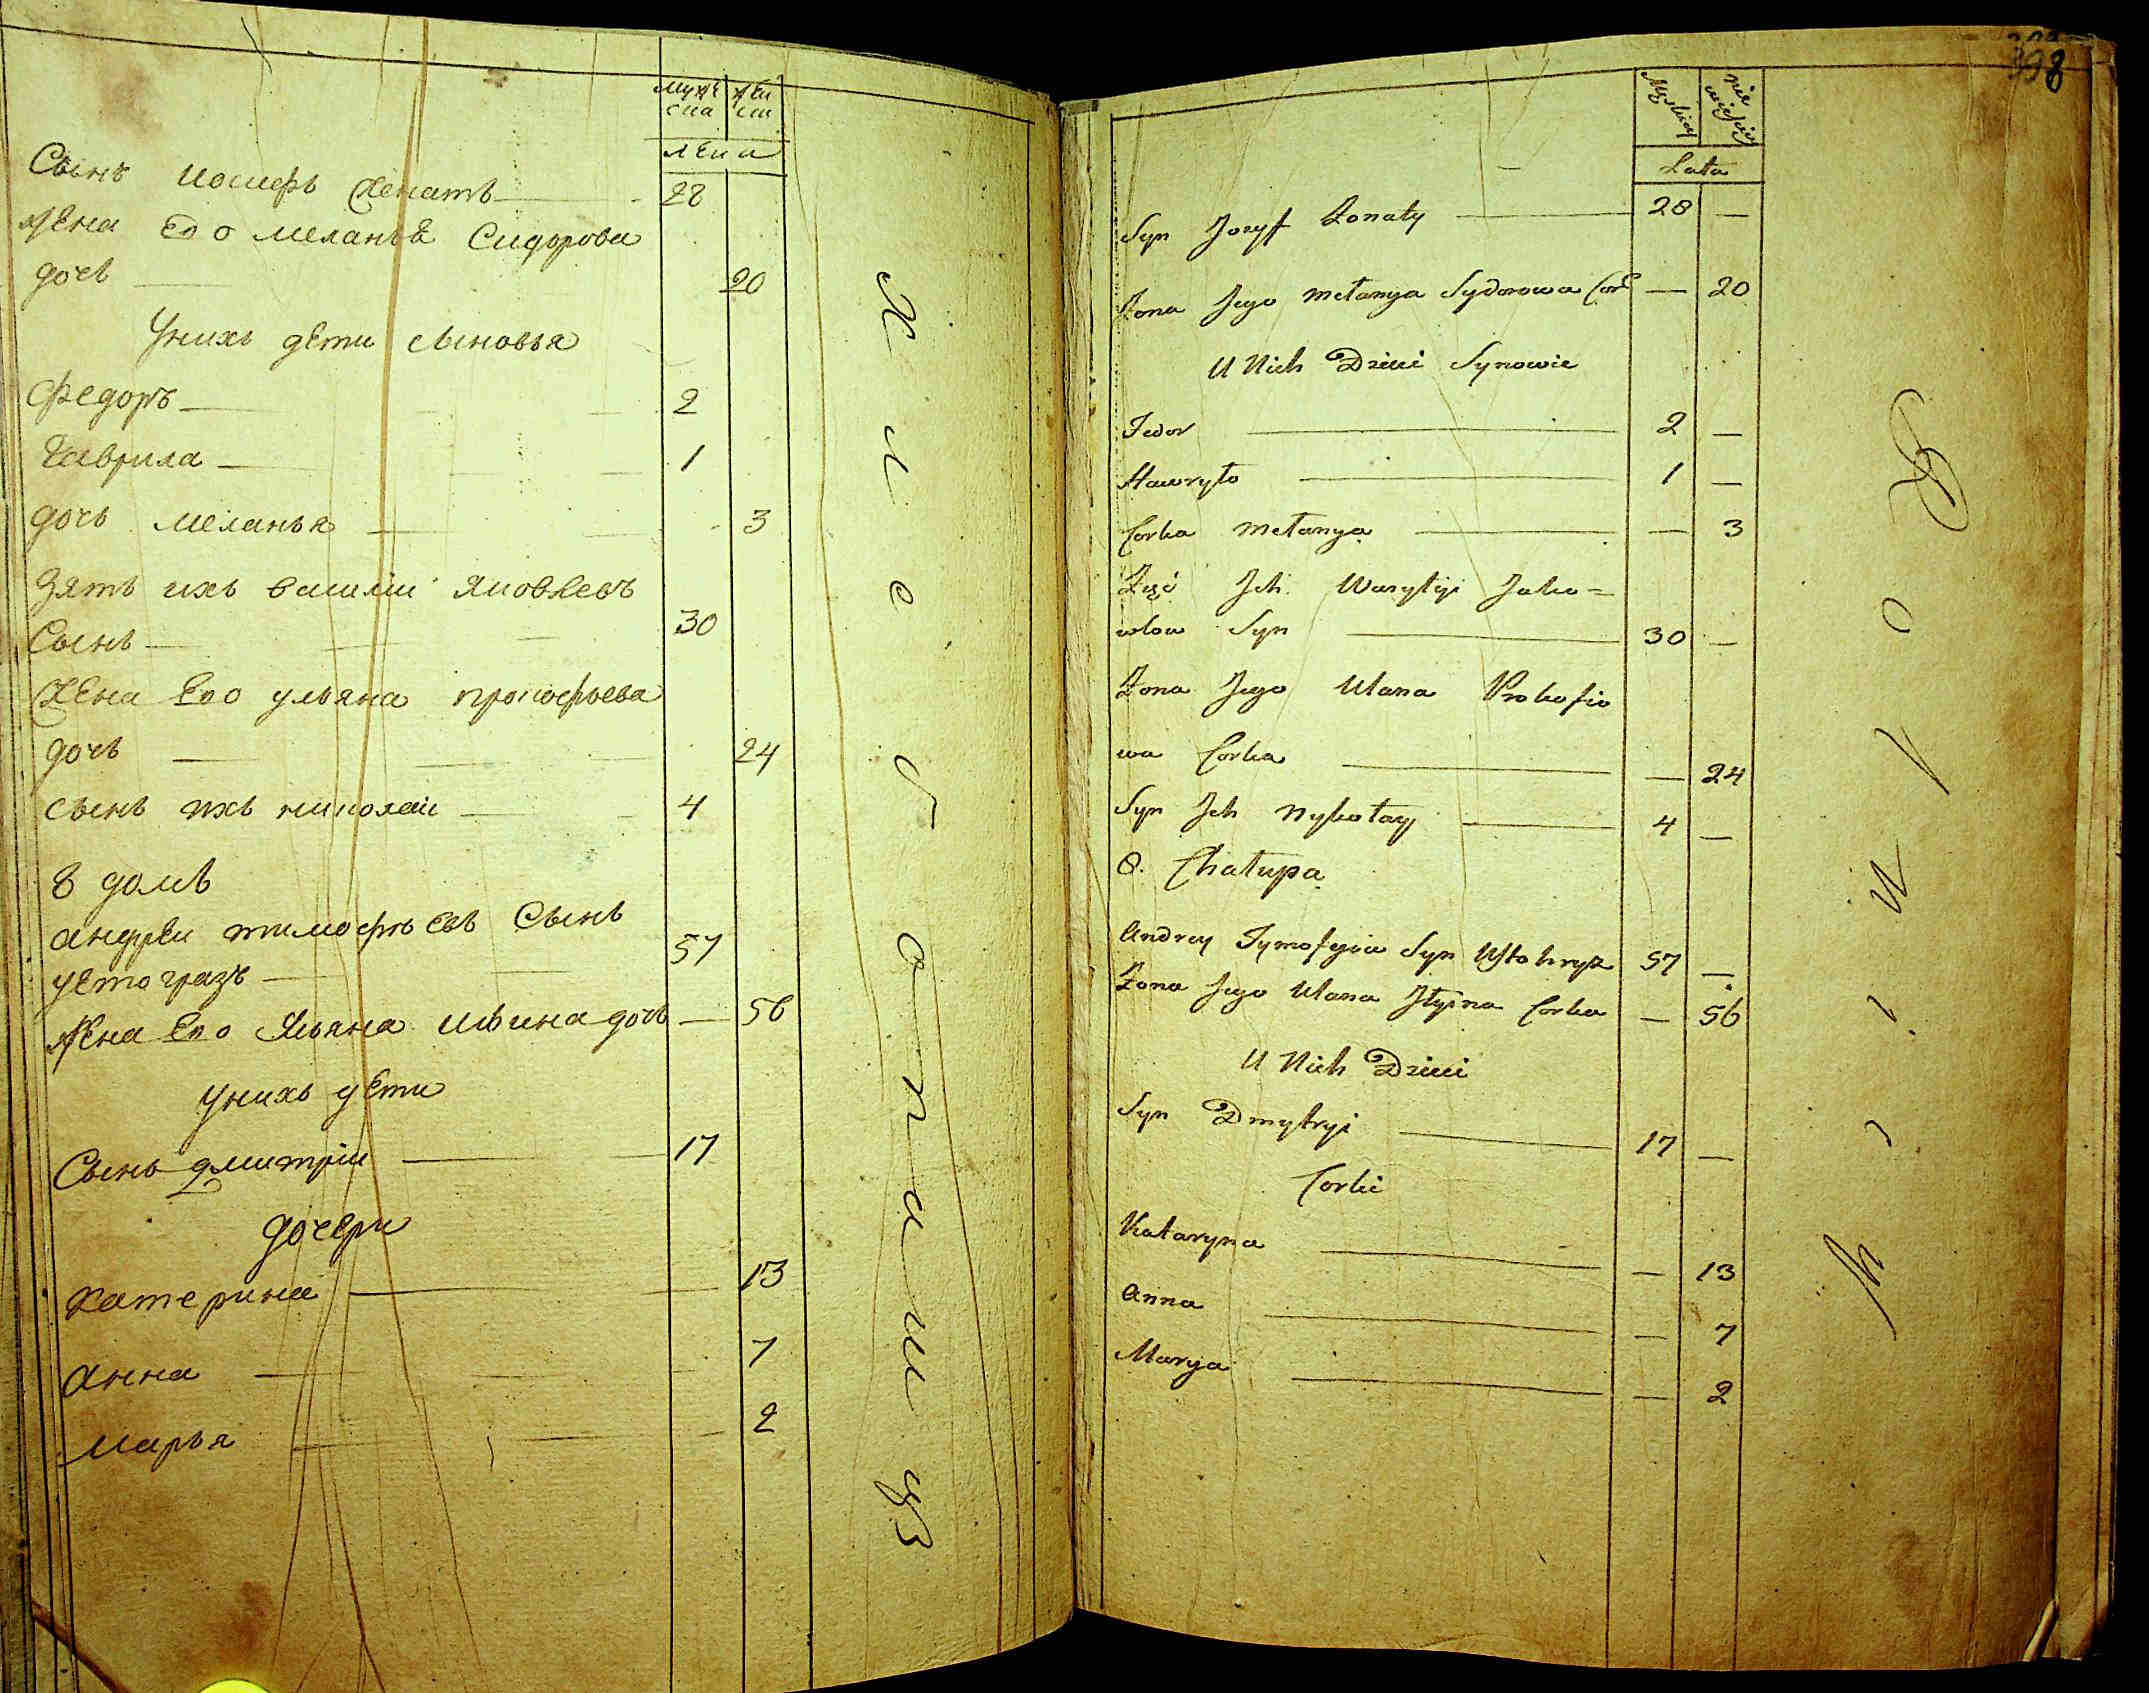 Мужеска Женска
лета
Сынъ иосифъ женатъ 28
жена Его меланья Сидорова
дочь 20
Унихъ дети сыновья
Федоръ 2
Гаврила 1
дочь меланья 3
Зять ихъ василии яковлевъ
Сынъ 30
Жена Его ульяна прокофьева
дочь 24
сынъ ихъ николаи 4
8 домъ
андреи тимофѣевъ Сынъ
устогразъ 57
жена Его Ульяна ильина дочь 56
унихъ дети
Сынъ дмитріи 17
дочери
катерина 13
анна 7
марья 2
398
Męskiey Niewieściey
Lata
Syn Jozyf Żonaty 28 —
Żona Jego Mełanya Sydorowa Cor — 20
U Nich Dzieci Synowie
Fedor 2 —
Hawryło 1 —
Corka Mełanya — 3
Zęć Jch Wasylyi Jako=
wlow Syn 30 —
Żona Jego Ulana Prokofio
wa Corka — 24
Syn Jch Nykołay 4 —
8. Chałupa
Andrey Tymofyiw Syn Ustohryz 57 —
Żona Jego Ulana Jłyina Corka — 56
U Nich Dzieci
Syn Dmytryi 17 —
Corki
Kataryna — 13
Anna — 7
Marya — 2